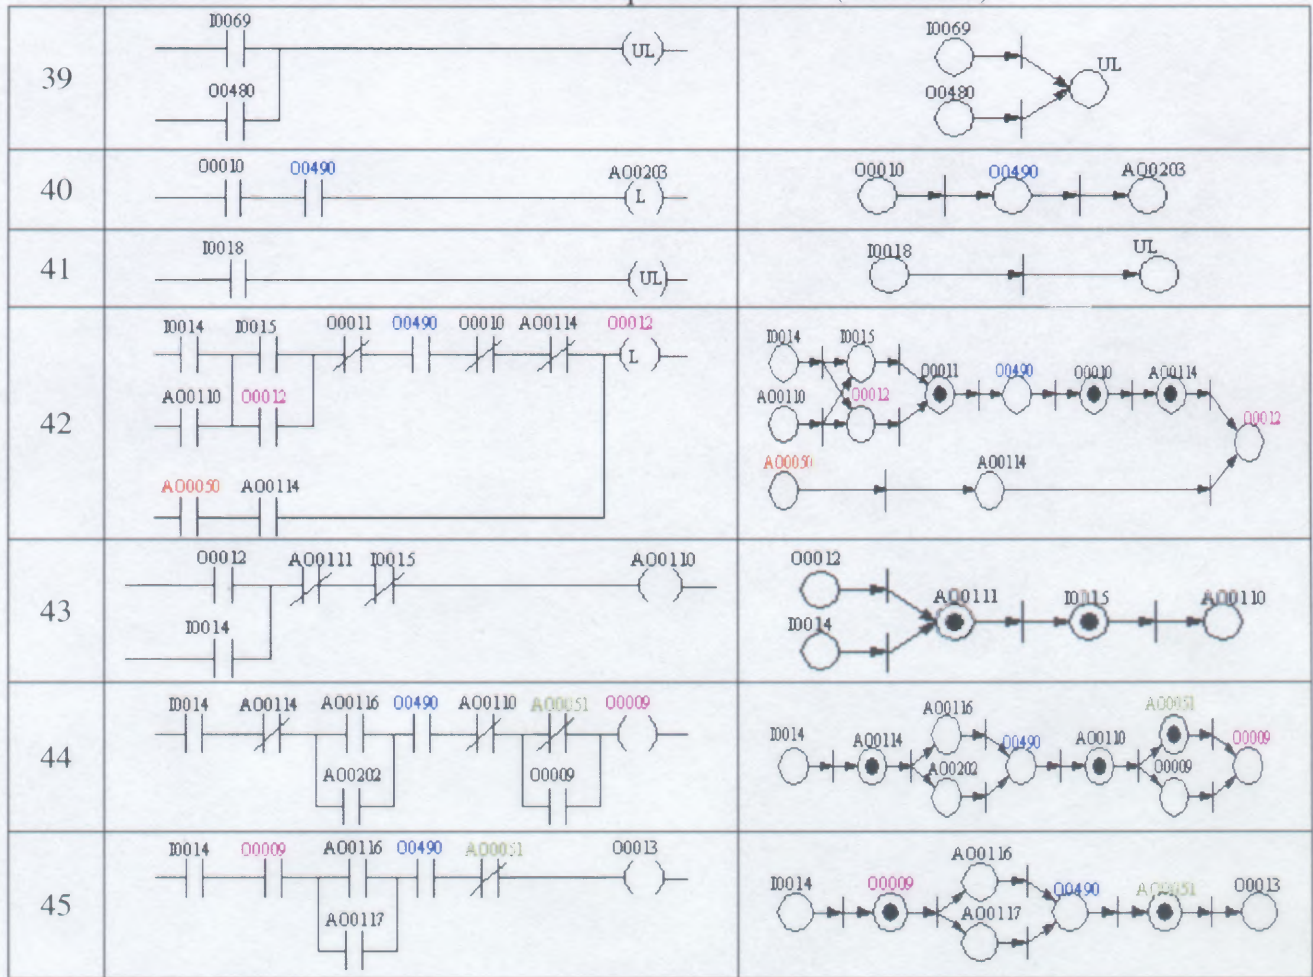 39
I0069
UL
O0480
I0069
UL
O0480
40
O0010 O0490 AO0203
L
O0010 O0490 AO0203
41
I0018
UL
I0018 UL
42
I0014 I0015 O0011 O0490 O0010 AO0114 O0012
L
AO0110 O0012
AO0050 AO0114
I0014 I0015
O0011 O0490 O0010 AO0114
AO0110 O0012
O0012
AO0050 AO0114
43
O0012 AO0111 I0015 AO0110
I0014
O0012
AO0111 I0115 AO0110
I0014
44
I0014 AO0114 AO0116 O0490 AO0110 AO0051 O0009
AO0202 O0009
AO0116 AO0051
I0014 AO0114 O0490 AO0110 O0009
AO0202 O0009
45
I0014 O0009 AO0116 O0490 AO0051 O0013
AO0117
AO0116
I0014 O0009 O0490 AO0051 O0013
AO0117